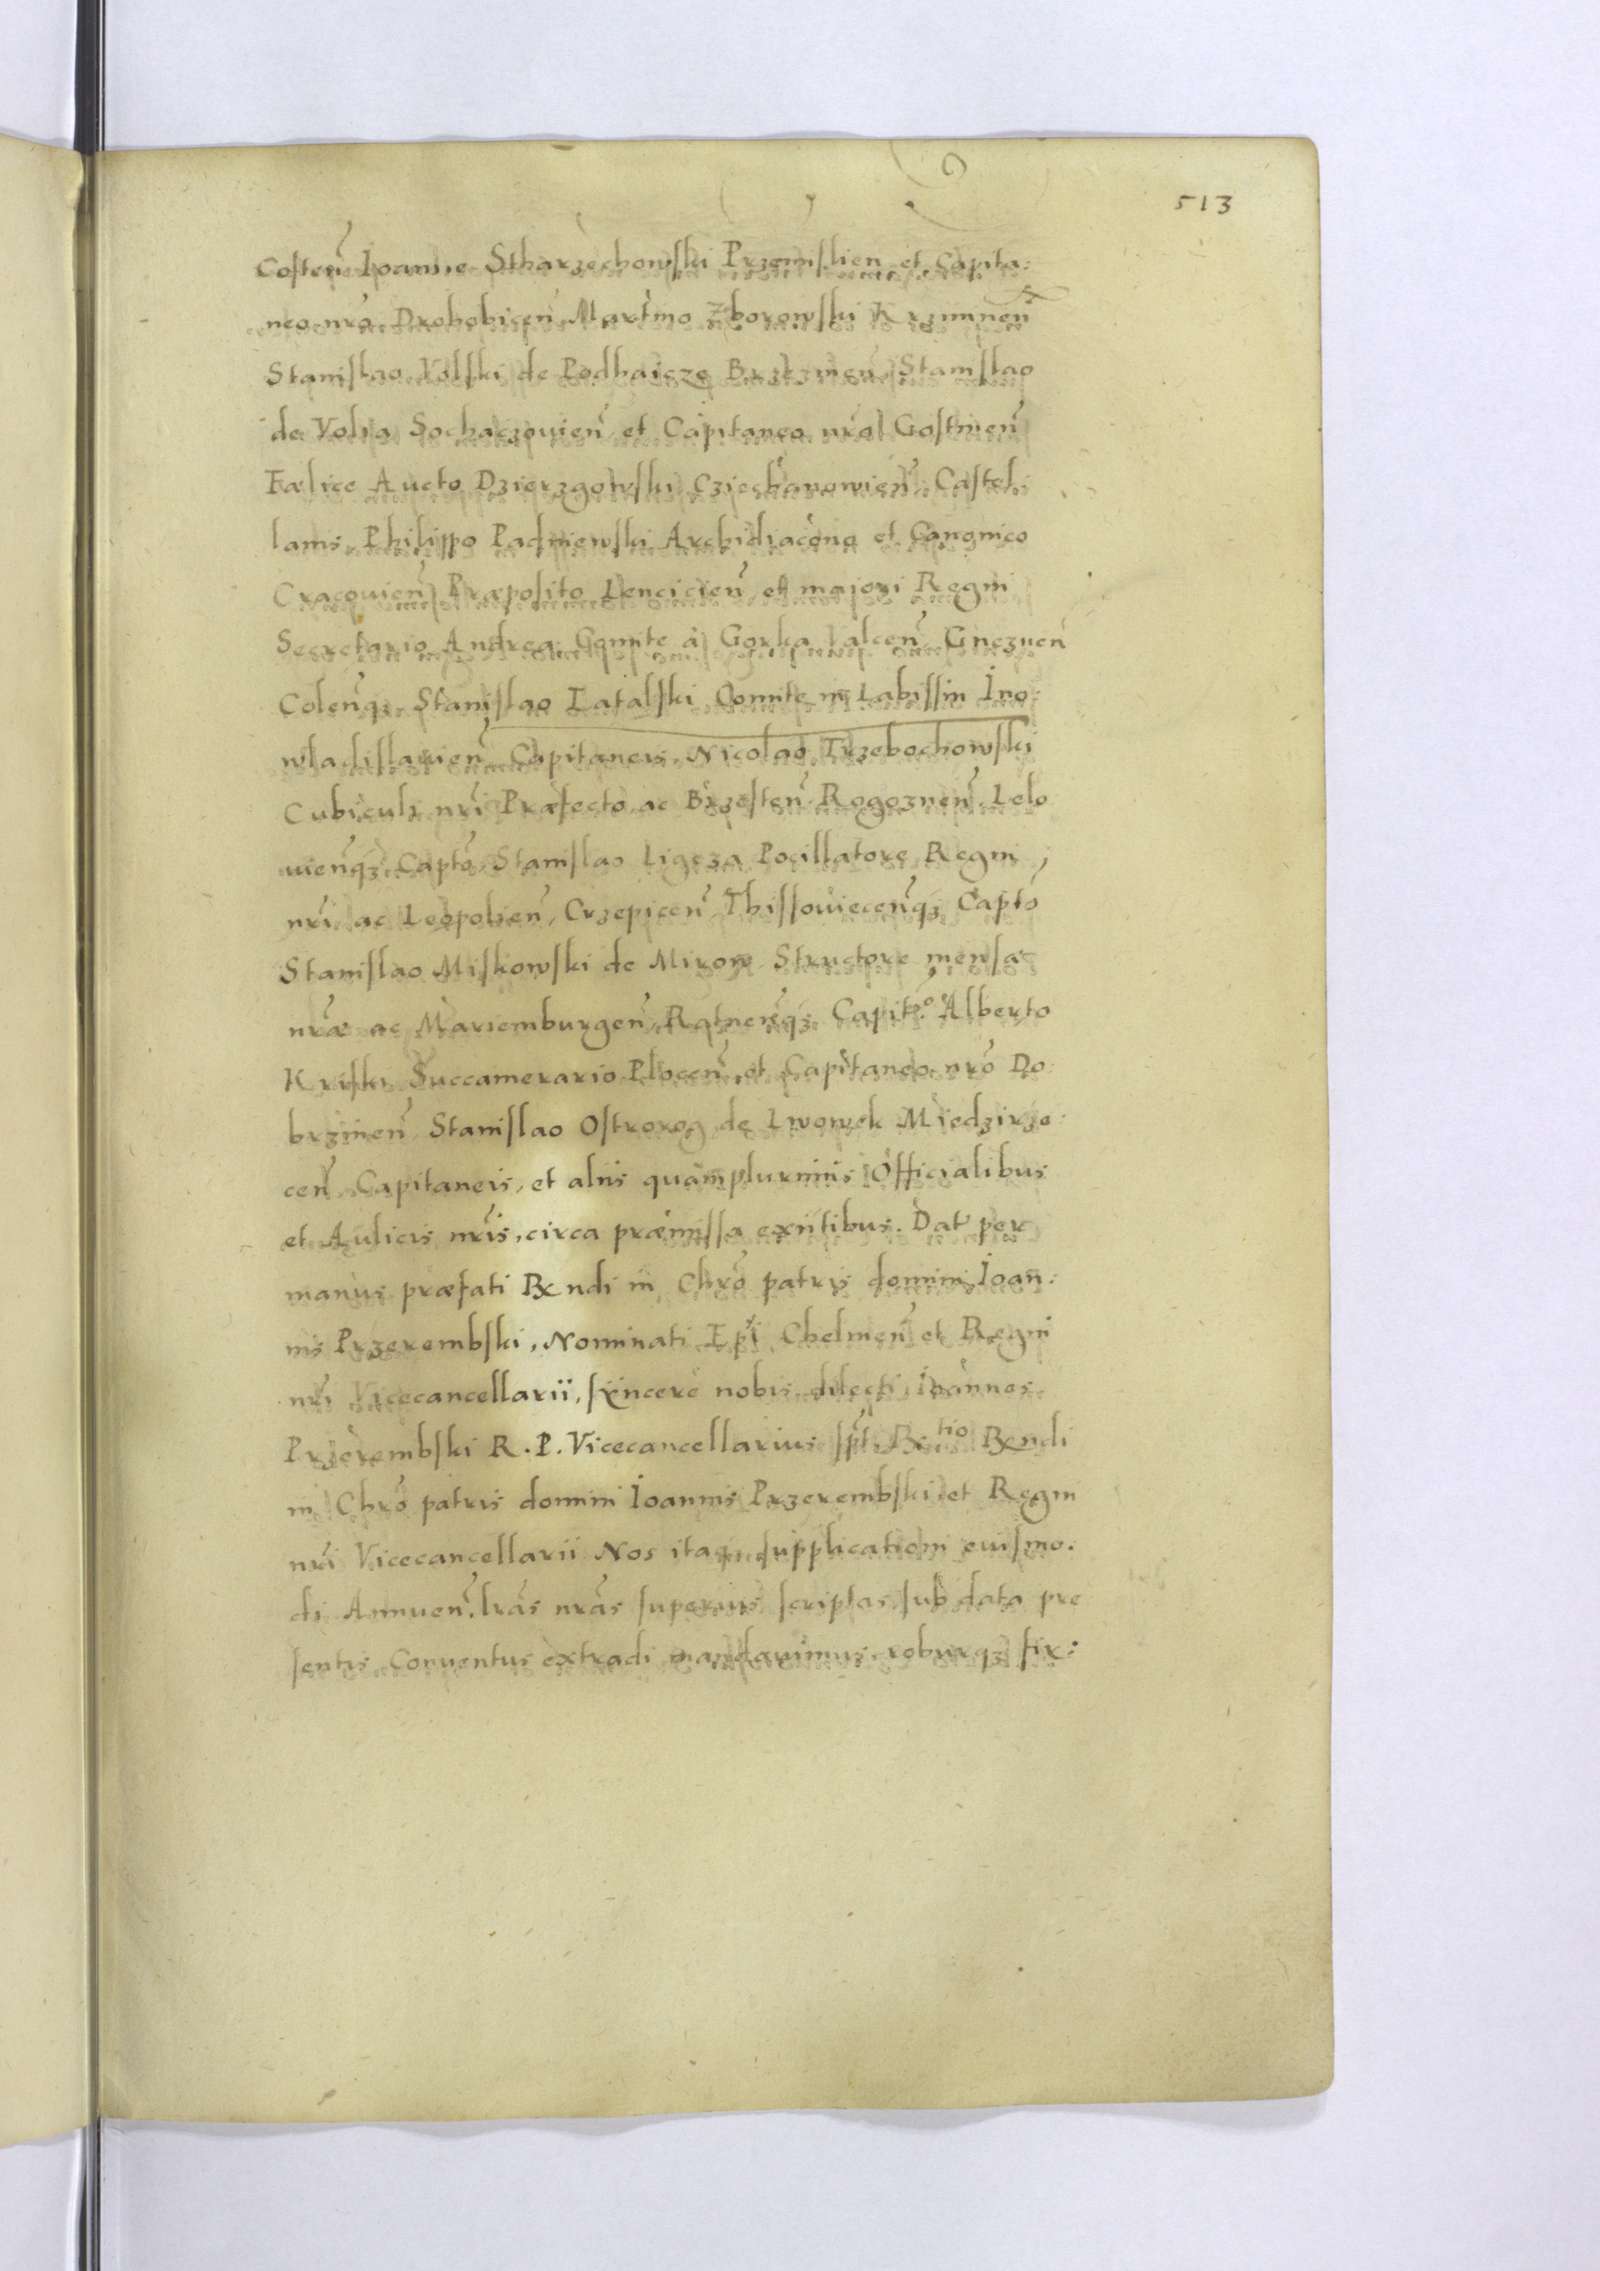 513
Costeñ Ioanne Stharzechowski Przemislien et Capita:
neo nro Drohobiceñ Martino Zborowski Krziuineñ
Stanislao Volski de Podhaicze Brzezineñ Stanislao
de Volia Sochaczouieñ et Capitaneo nro Gostineñ
Fælice Aucto Dzierzgowski Cziechanowieñ Castel:
lanis Philippo Padniewski Archidiacono et Canonico
Cracouieñ Præposito Lencicieñ et majori Regni
Secretario Andrea Comite à Gorka Valceñ Gnezneñ
Coleñqz Stanislao Latalski Comite in Labissin Ino:
wladislauieñ Capitaneis, Nicolao Trzebochowski
Cubiculi nri Præfecto ac Brzesteñ Rogozneñ Lelo
uieñqz Capto, Stanislao Ligeza Pocillatore Regni
nri ac Leopolieñ, Crzepiceñ Thissouieceñqz Capto
Stanislao Miskowski de Mirow Structore mensæ
nræ ac Mariemburgeñ, Ratneñqz Capit.º Alberto
Kriski Succamerario Ploceñ et Capitaneo nro Do:
brzineñ Stanislao Ostrorog de Lwowek Miedzirze:
ceñ Capitaneis, et aliis quamplurimis Officialibus
et Aulicis nris, circa præmissa exñtibus. Dat per
manus præfati Rxndi in Chro patris domini Ioan:
nis Przerembski, Nominati Epi Chelmeñ et Regni
nri Vicecancellarii, sincere nobis dilecti Ioannes
Przerembski R. P. Vicecancellarius spt, Rxtio Rxndi
in Chro patris domini Ioannis Przerembski et Regni
nri Vicecancellarii Nos itaqz supplicationi euismo:
di Annueñ, lras nras superius scriptas sub data pre
sentis Conuentus extradi mandauimus, roburqz fir: